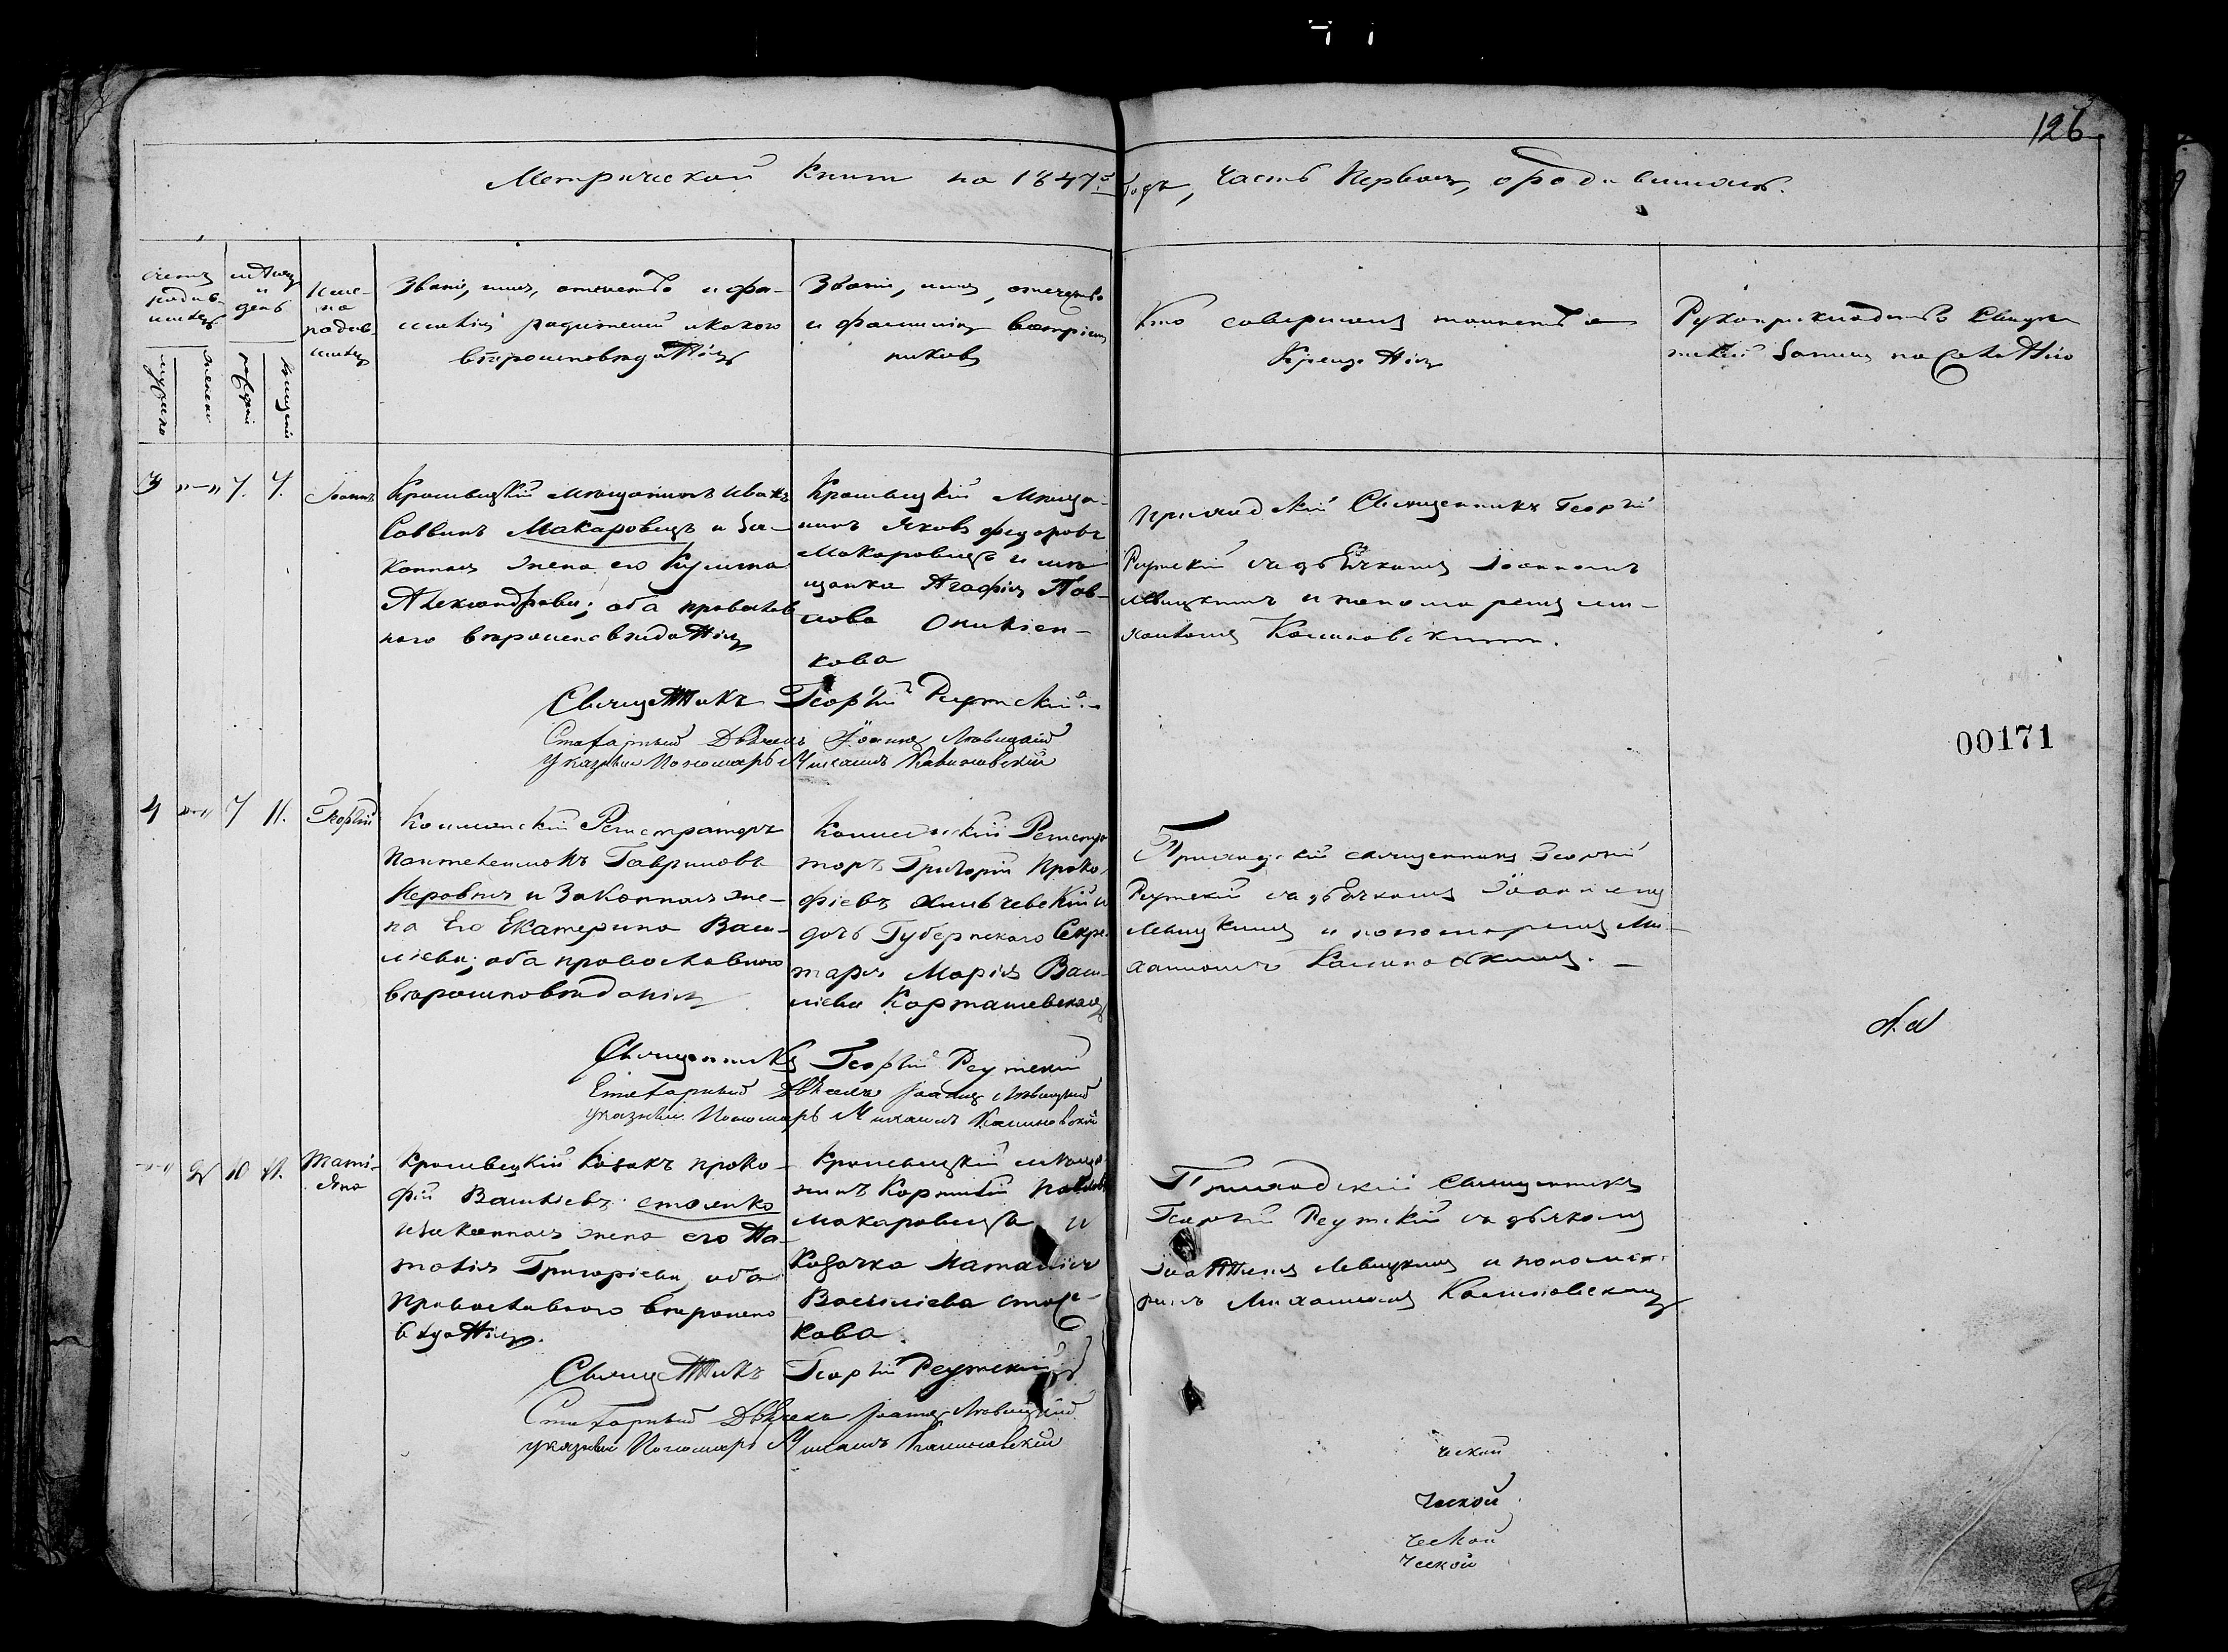 126
Метрической Книги на 1847й годъ, часть Первая, о родившихся.
счетъ родившихся
мужеска
женска
мѣсяцъ и день
рожденія
крещенія
Имена родившихся
Званіе, имя, отчество и фа-
милія родителей и какого
вѣроисповѣданія
Званіе, имя, отчество
и фамилія воспріем-
никовъ
Кто совершалъ таинство
Крещенія
Рукоприкладство свидѣ-
телей записи по желанію
3 „—„ 7. 7. Іоаннъ
Кролевецкій мѣщанинъ Иванъ
Саввинъ Макаровецъ и за-
конная жена его
Александрова; оба православ
наго вѣроисповѣданія
Кролевецкій Мѣща-
нинъ Яковъ Федоровъ
Макаровецъ и мѣ
щанка Агафія Пав-
лова
кова
Приходскій Священникъ Георгій
Реутскій съ дьячкомъ Іоанномъ
Левицкимъ и пономаремъ Ми-
хаиломъ Калиновскимъ.
Священникъ Георгій Реутскій.
Дьячекъ Іоаннъ Левицкій
указный Пономарь Михаилъ Калиновскій
00171
4 „—„ 7 11. Георгій
Коллежскій Регистраторъ
Пантелеимонъ Гавриловъ
и Законная же-
на Его Екатерина Васи-
лієва; оба православного
вѣроисповѣданія
Коллежскій Регистра
торъ Григорій Проко
фіевъ Хильчевскій и
дочь Губернского Секре
таря Марія Васи-
лієва Карташевская
Приходскій священникъ Георгій
Реутскій съ дьячкомъ Іоанномъ
Левицкимъ и пономаремъ Ми-
хаиломъ Калиновскимъ. —
Священникъ Георгій Реутскій
Дьячекъ Іоаннъ Левицкій
указный Пономарь Михаилъ Калиновскій
„—„ 2 10 11. Тати-
яна
Кролевецкій Козакъ Проко-
фій Васильевъ
и законная жена его На-
талія Григоріева, оба
Православного вѣроиспо
вѣданія.
Кролевецкій мѣща-
нинъ Корнилій Павловъ
Макаровецъ и
Козачка Наталія
Василієва
кова.
Приходскій Священникъ
Георгій Реутскій съ дьячкомъ
Іоанномъ Левицкимъ и понома-
ремъ Михаиломъ Калиновскимъ
Священникъ Георгій Реутскій
Дьячекъ Іоаннъ Левицкій
указный Пономарь Михаилъ Калиновскій
ческой
ческой
ческой
ческой